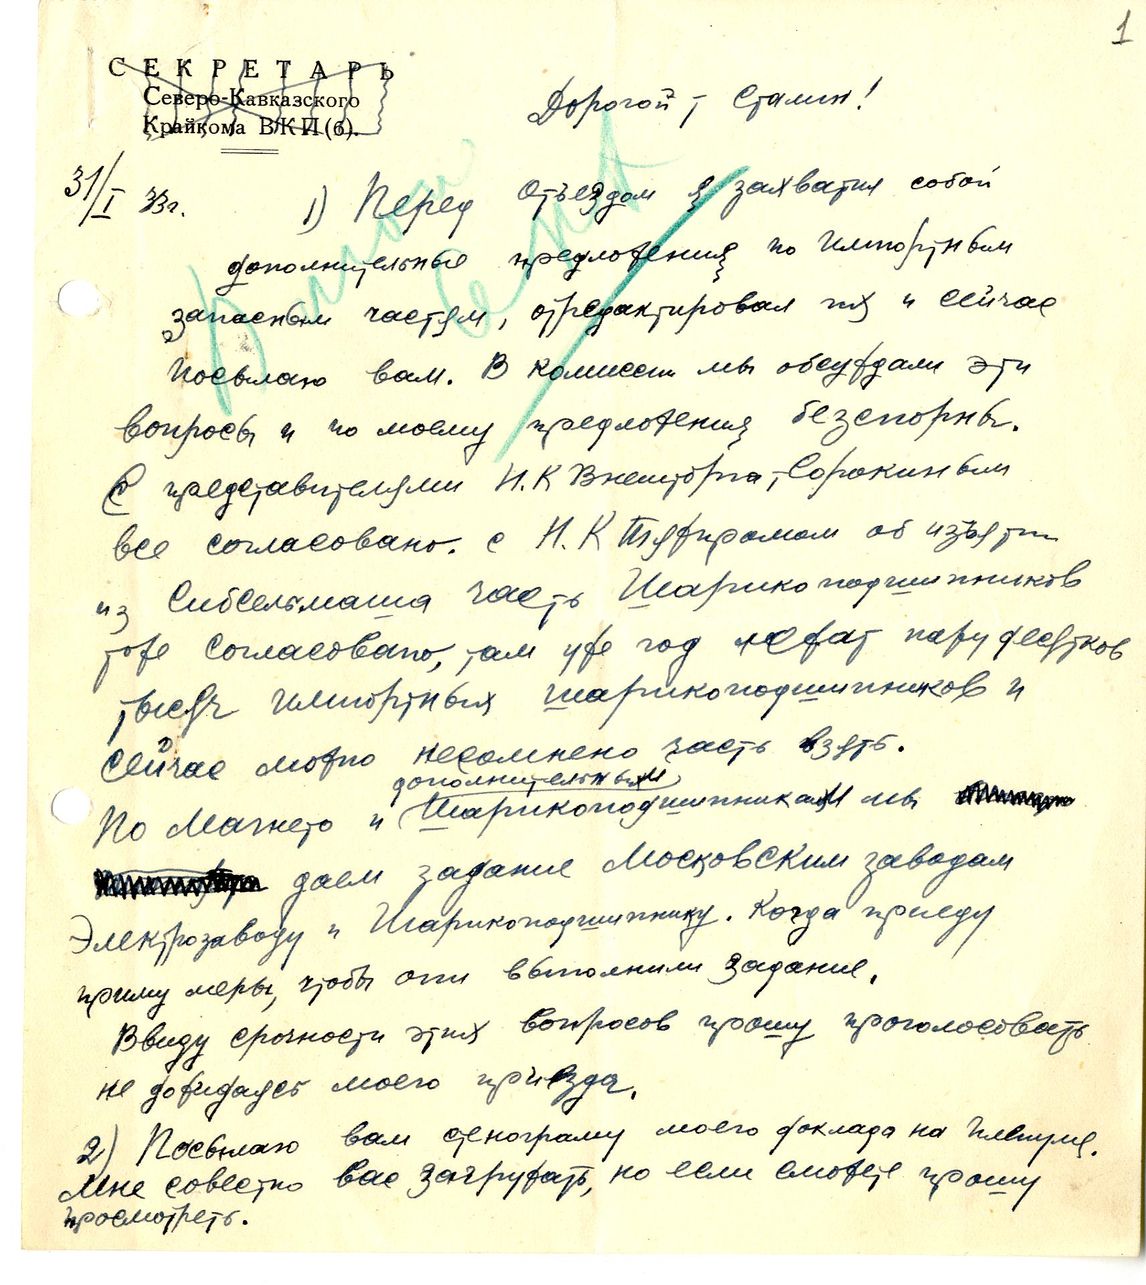 1
СЕКРЕТАРЬ
Северо-Кавказского
Крайкома ВКП(б).
Дорогой т Сталин!
31/I 33г.
1) Перед отъездом я захватил собой
дополнительные предложения по импортным
запасным частям, отредактировал их и сейчас
посылаю вам. В комиссии мы обсуждали эти
вопросы и по моему предложения безспорны.
С представителями Н.К Внешторга, т Сорокиным
все согласовано. с Н.К Тяжпромом об изъятии
из Сибсельмаша часть Шарикоподшипников
тоже согласовано, там уже год лежат пару десятков
тысяч импортных шарикоподшипников и
сейчас можно несомнено часть взять.
дополнительным
По Магнето и Шарикоподшипникам мы
даем задание Московским заводам
Электрозаводу и Шарикоподшипнику. Когда приеду
приму меры, чтобы они выполнили задание.
Ввиду срочности этих вопросов прошу проголосовать
не дожидаясь моего приезда.
2) Посылаю вам стенограму моего доклада на пленуме.
Мне совестно вас загружать, но если сможете прошу
просмотреть.